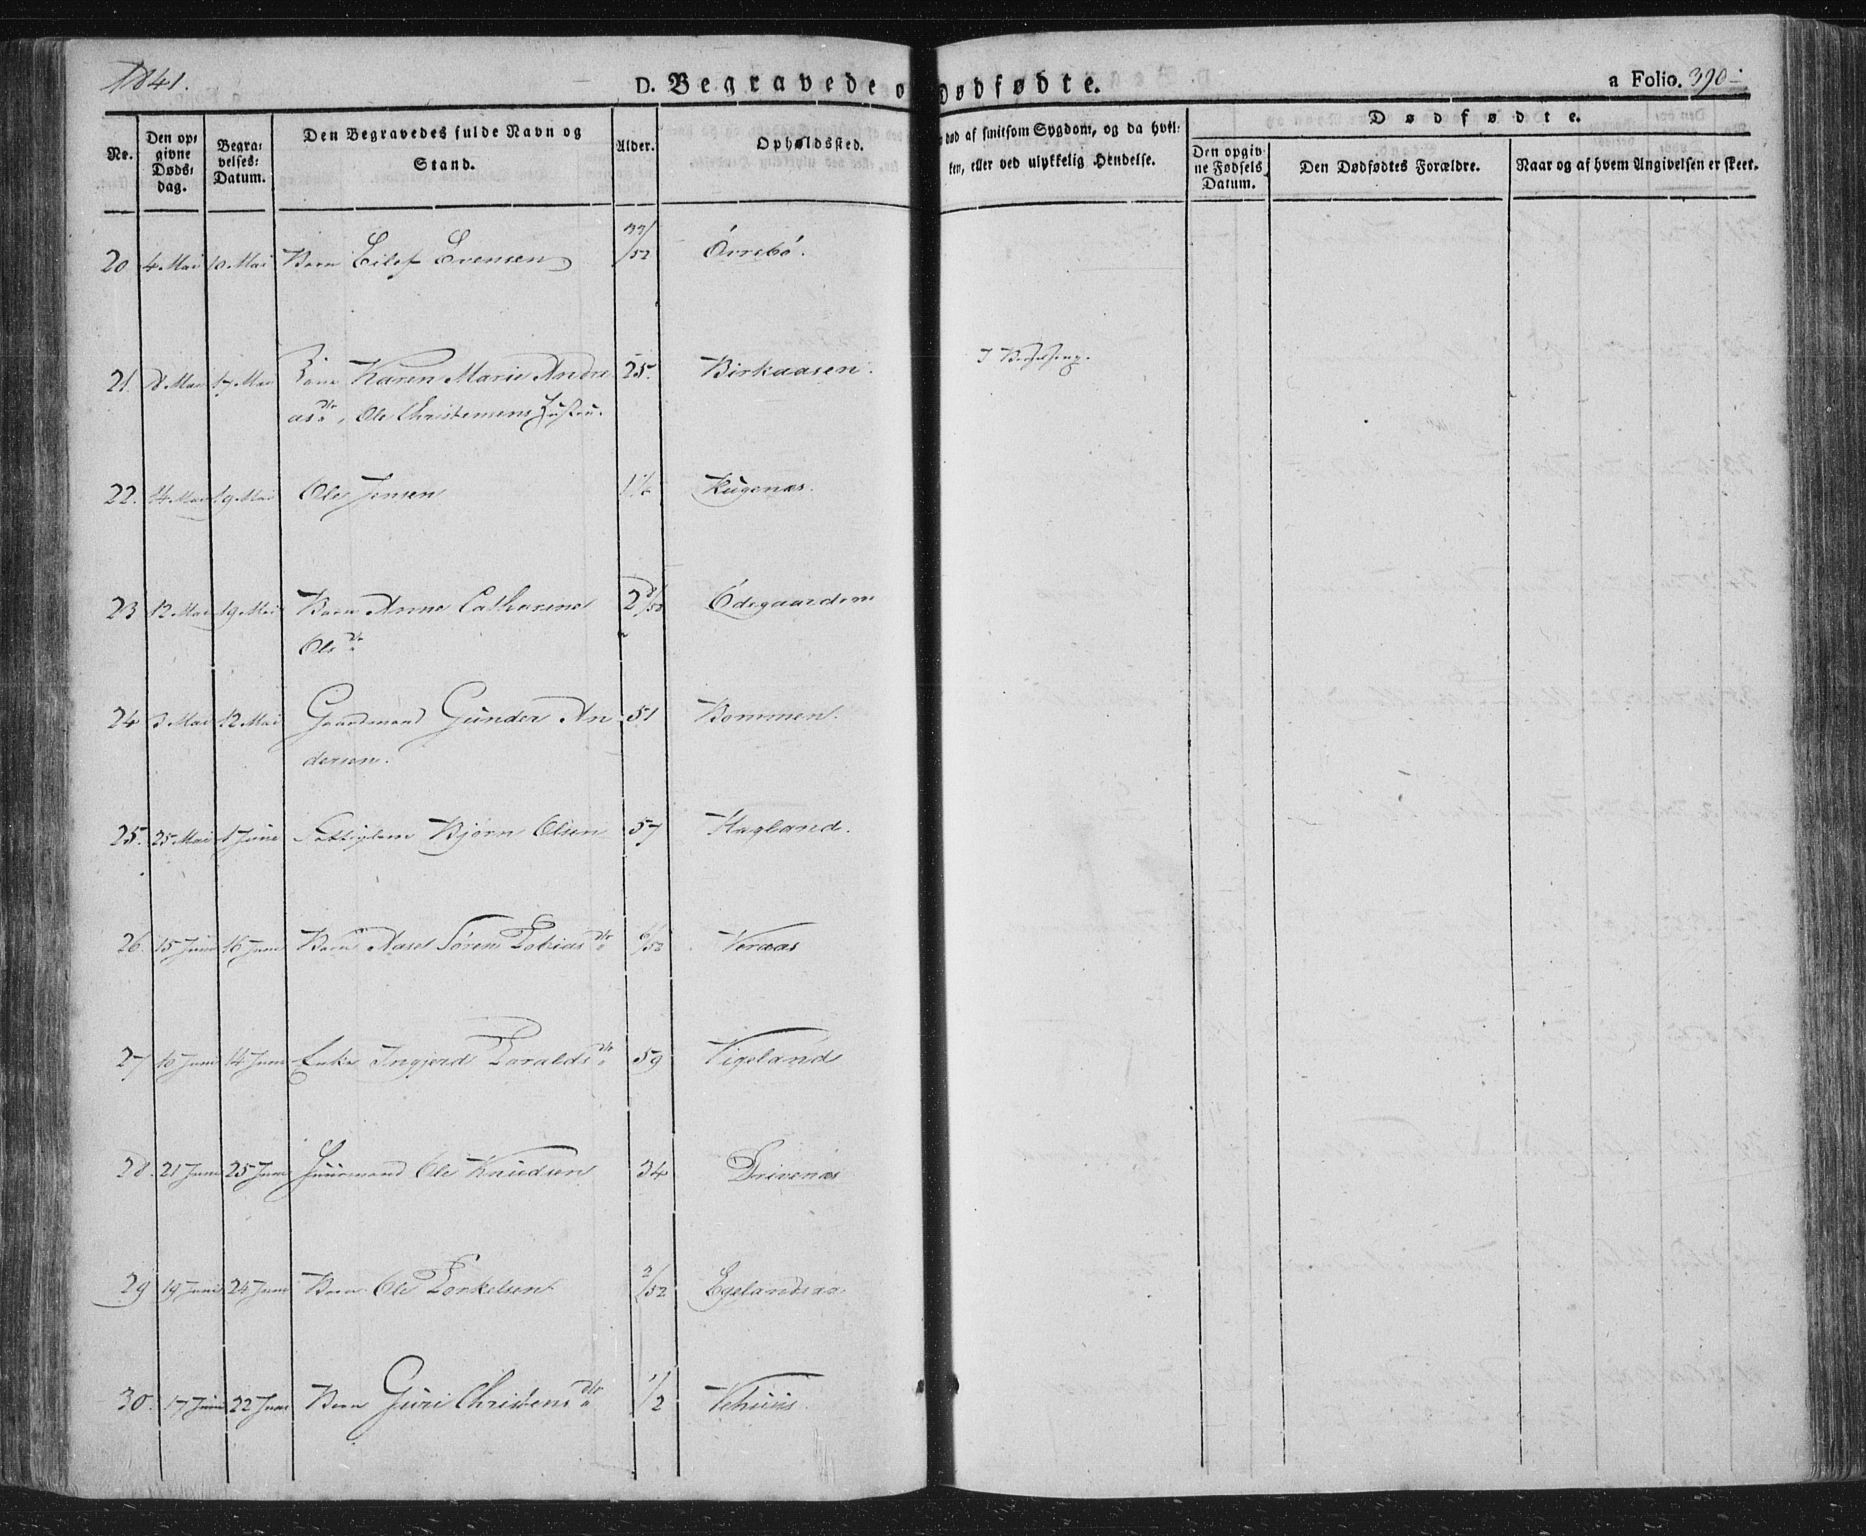 1841.
D. Begravede o
Dødfødte.
a Folio. 390
Nr.
Den op=
givne
Døds=
dag.
Begra=
velses=
Datum.
Den Begravedes fulde Navn og
Stand.
Alder.
Opholdssted.
død af smitsom Sygdom, og da hvil=
ken, eller ved ulykkelig Hendelse.
Dødfødte.
Den opgiv=
ne Fødsels
Datum.
Den Dødfødtes Forældre.
Naar og af hvem Angivelsen er skeet.
20 4 Mai 10 Mai Barn Eilef Evensen /52 Örrebö.
21. 8 Mai 17 Mai Karen Marie Andre 25. Birkaasen. I Barselseng.
asdr, Ole Christensens Hustru.
22. 14 Mai 19 Mai Ole Jensen Hugenæs.
23 12 Mai 19 Mai Barn Anne Cathrine 2 Ödegaarden
Olsdr
24 3 Mai 12 Mai Gaardmand Gunder An 51 Bommen.
dersen.
25. 25 Mai 1 Juni Fattiglem Bjørn Olsen 57 Hagland.
26. 15 Juni 16 Juni Barn Aasel Sören Tobiasdr 6/52 Veraas
27 10 Juni 14 Juni Enke Ingjerd Taraldsdr 59 Vigeland
28. 21 Juni 25 Juni Huusmand Ole Knudsen 34 Drivenæs
29 19 Juni 24 Juni Barn Ole Torkelsen 2/52 Egelandsaa
30. 17 Juni 22 Juni Barn Guri Christensdr 1/2 Vehuus.